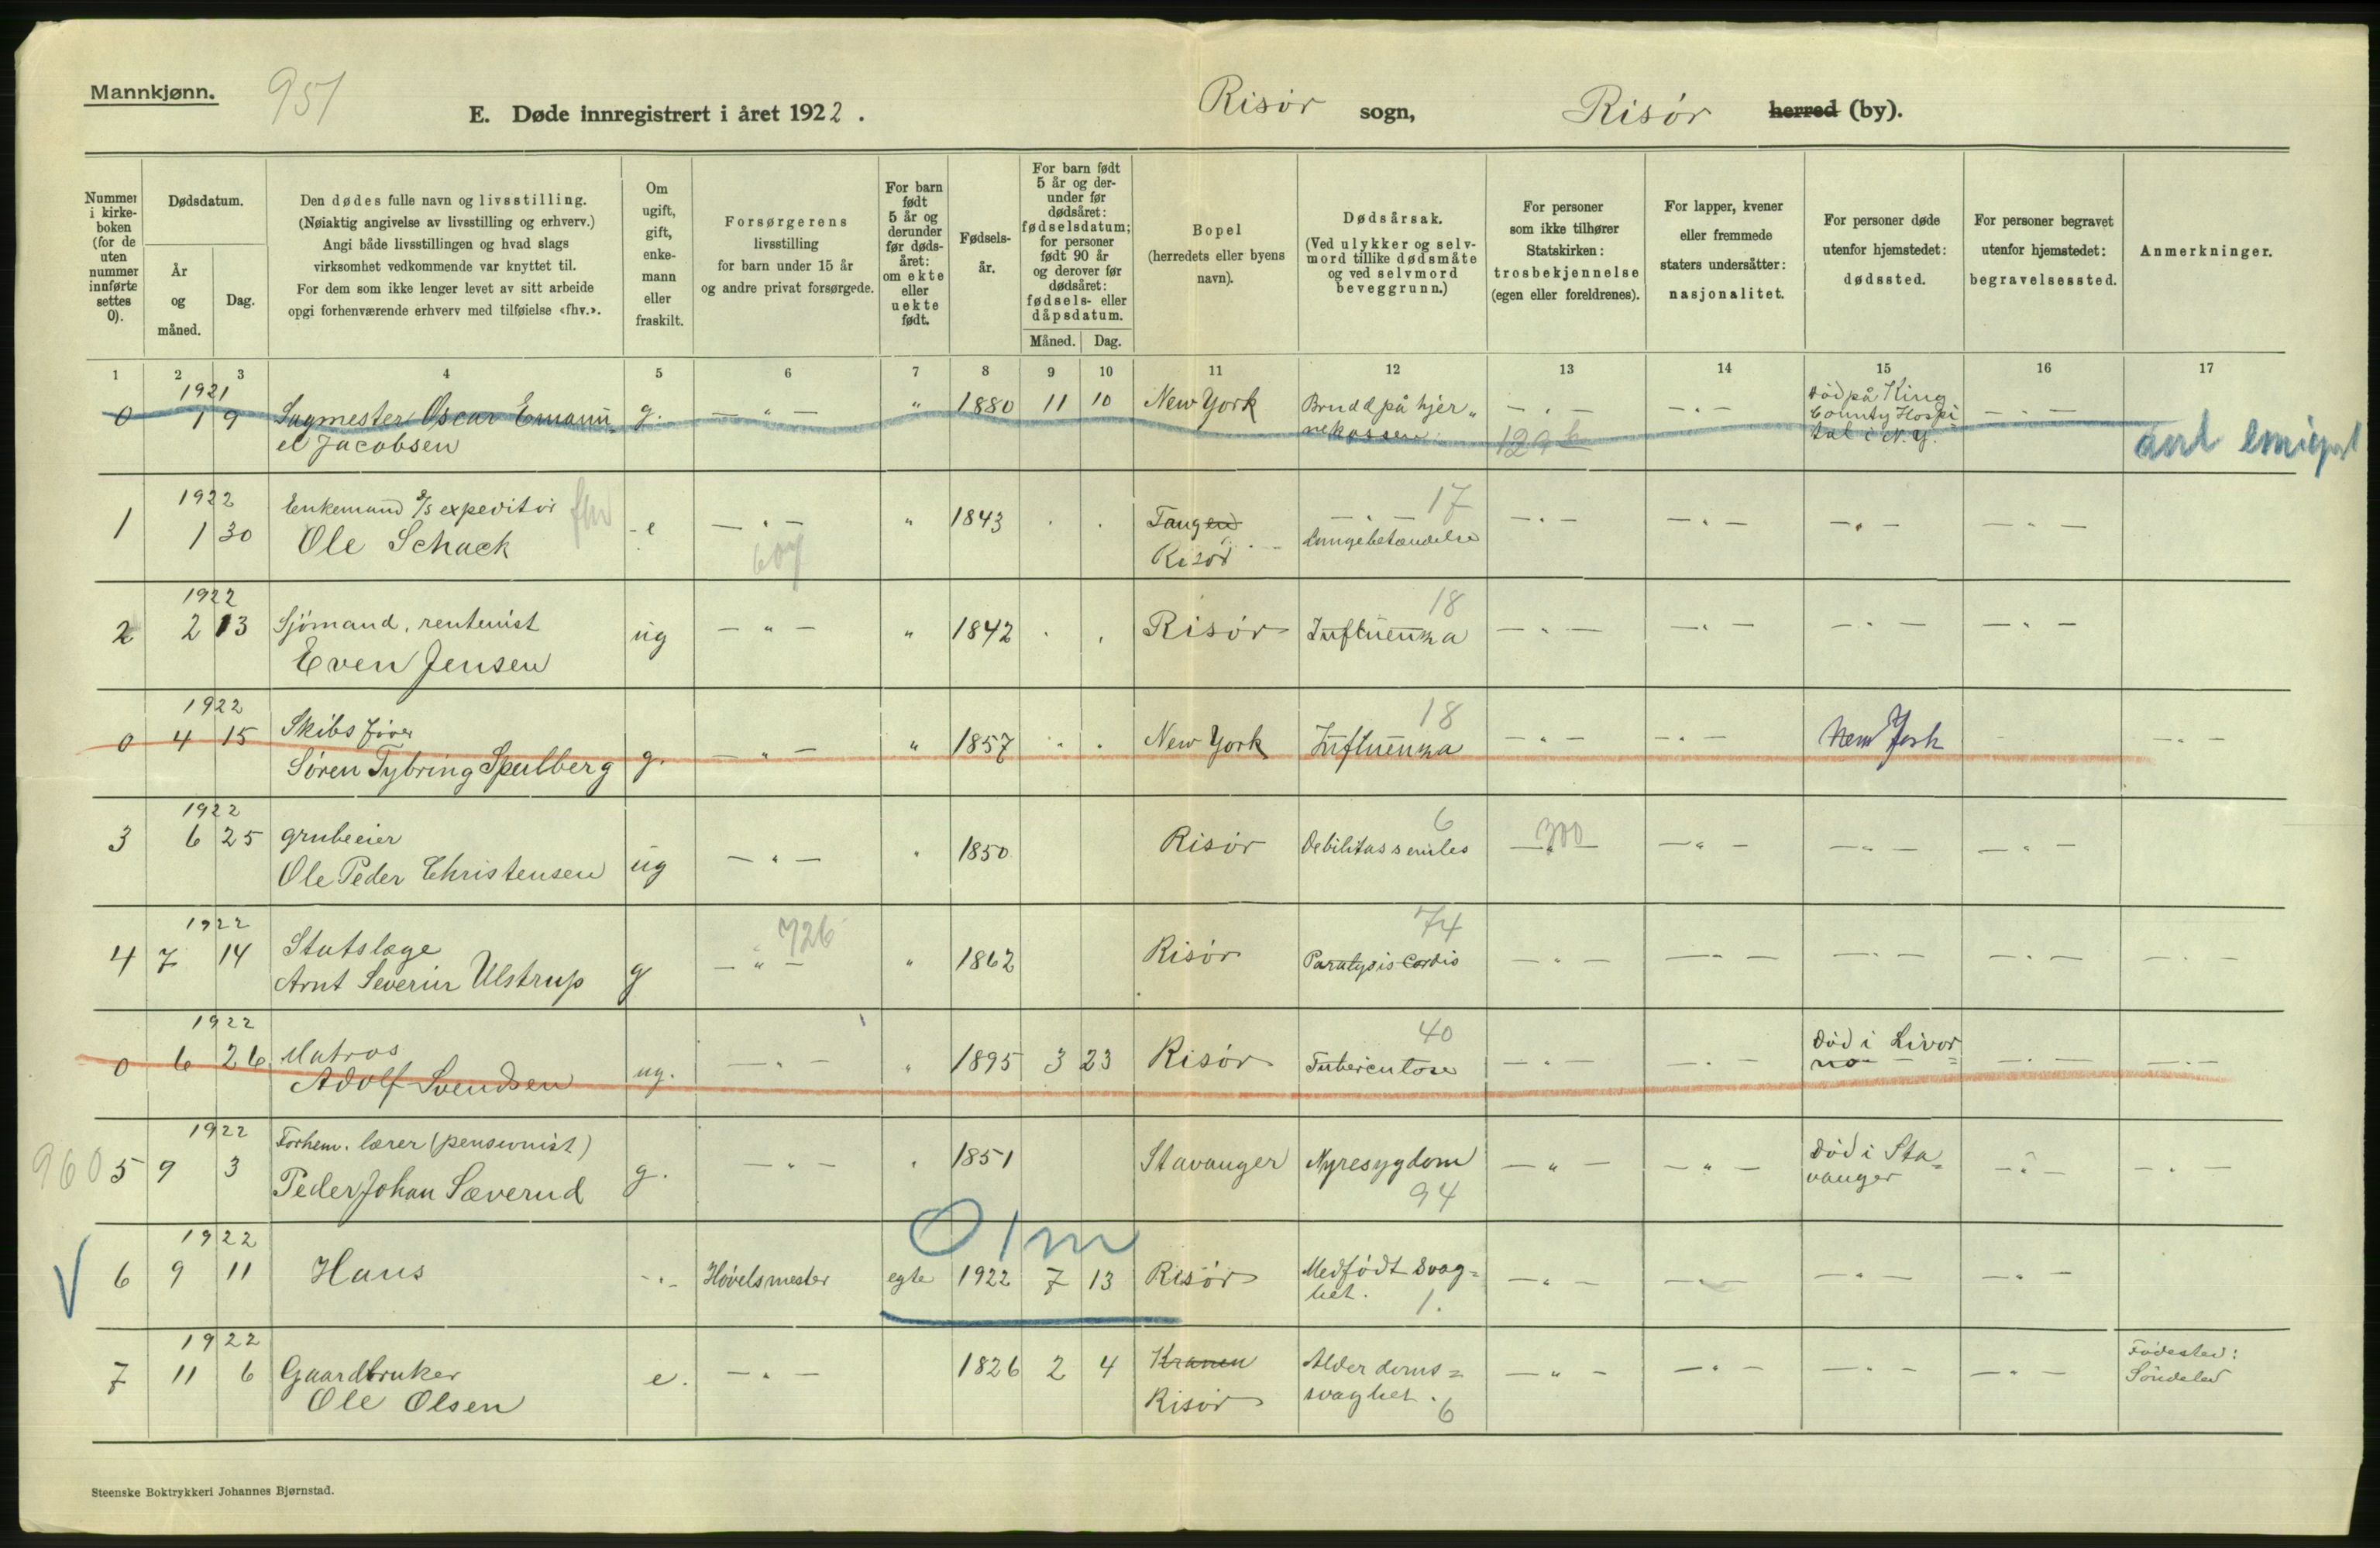 Mannkjønn.
951
E. Døde innregistrert i året 1922.
Risör sogn,
Risör herred (by).
Nummer i kirke-boken (for de uten nummer innførte settes 0).
Dødsdatum.
År og måned.
Dag.
Den dødes fulle navn og livsstilling.
(Nøiaktig angivelse av livsstilling og erhverv.)
Angi både livsstillingen og hvad slags
virksomhet vedkommende var knyttet til.
For dem som ikke lenger levet av sitt arbeide
opgi forhenværende erhverv med tilføielse «fhv.».
Om ugift, gift, enke-mann eller fraskilt.
Forsørgerens
livsstilling
for barn under 15 år
og andre privat forsørgede.
For barn født 5 år og derunder før døds-året: om ekte eller uekte født.
Fødsels-år.
For barn født 5 år og der-under før dødsåret: fødselsdatum; for personer født 90 år og derover før dødsåret: fødsels- eller dåpsdatum.
Måned. Dag.
Bopel
(herredets eller byens
navn).
Dødsårsak.
(Ved ulykker og selv-
mord tillike dødsmåte
og ved selvmord
beveggrunn.)
For personer
som ikke tilhører
Statskirken:
trosbekjennelse
(egen eller foreldrenes).
For lapper, kvener
eller fremmede
staters undersåtter:
nasjonalitet.
For personer døde
utenfor hjemstedet:
dødssted.
For personer begravet
utenfor hjemstedet:
begravelsessted.
Anmerkninger.
1 2 3 4 5 6 7 8 9 10 11 12 13 14 15 16 17
1921
0 1 9 Sagmester Oscar Emanu= g. — " — " 1880 11 10 New York Brudd på hjer„ — " — — " — Död på King — " —
el Jacobsen nekassen County Hospi=
tal i N.Y.
1922
1 1 30 Enkemand D/S expeditör fhv e — " — " 1843 Tangen — " — 17 — " — — " — — " — — " —
Ole Schack 607 Risör Lungebetændelse
1922
2 2 13 Sjömand, rentenist ug — " — " 1842 Risör Influenza 18 — " — — " — — " — — " —
Even Jensen
1922
0 4 15 Skibsförer g. — " — " 1857 New York Influenza 18 — " — — " — New York — " —
Sören Tybring Spulberg
1922
3 6 25 grubeeier ug — " — " 1850 Risör Debilitas seniles 6 — " — 300 — " — — " — — " —
Ole Peder Christensen
1922
4 7 14 Statslæge g — " — 726 " 1862 Risör Paralysis Cordis 74 — " — — " — — " — — " — — " —
Arnt Severin Ulstrup
1922
0 6 26 Matros ug. — " — " 1895 3 23 Risör Tuberculose 40 — " — — " — Död i Livor — " — — " —
Adolf Svendsen no
1922
960 5 9 3 Forhenv. lærer (pensionist) g. — " — " 1851 Stavanger Nyresygdom — " — — " — Död i Sta= — " — — " —
Peder Johan Sæverud 94 vanger
1922 0 1 m
6 9 11 Hans — " — Hövelsmester egte 1922 7 13 Risör Medfödt svag= — " — — " — — " — — " —
het. 1.
1922
7 11 6 Gaardbruker e. — " — 1826 2 4 Kranen Alderdoms= — " — — " — — " — — " — Födested:
Ole Olsen Risör svaghet. 6 Söndeled
Steenske Boktrykkeri Johannes Bjørnstad.